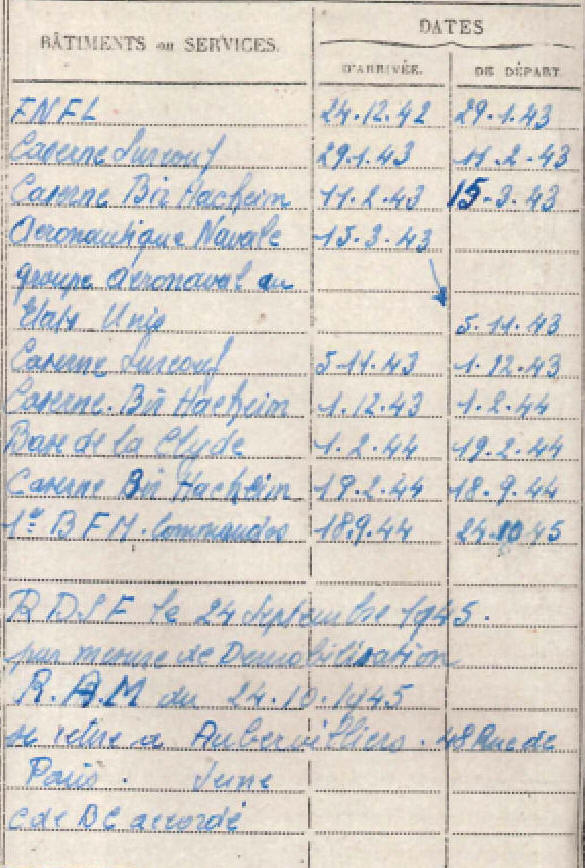 BÂTIMENTS ou SERVICES.
DATES
D'ARRIVÉE. DE DÉPART.
FNFL 24.12.42 29.1.43
Caserne Surcouf 29.1.43 11.2.43
Caserne Bir Hacheim 11.2.43 15.3.43
Aeronautique Navale 15.3.43
groupe aeronaval au
Etats Unis 5.11.43
Caserne Surcouf 5.11.43 1.12.43
Caserne Bir Hacheim 1.12.43 1.2.44
Base de la Clyde 1.2.44 19.2.44
Caserne Bir Hacheim 19.2.44 18.9.44
1er B F M. Commandos 18.9.44 24.10.45
R D S F le 24 Septembre 1945.
par mesure de Demobilisation
R.A.M du 24.10.1945
se retire a Aubervilliers. 48 Rue de
Paris. Seine
C de BC accordé